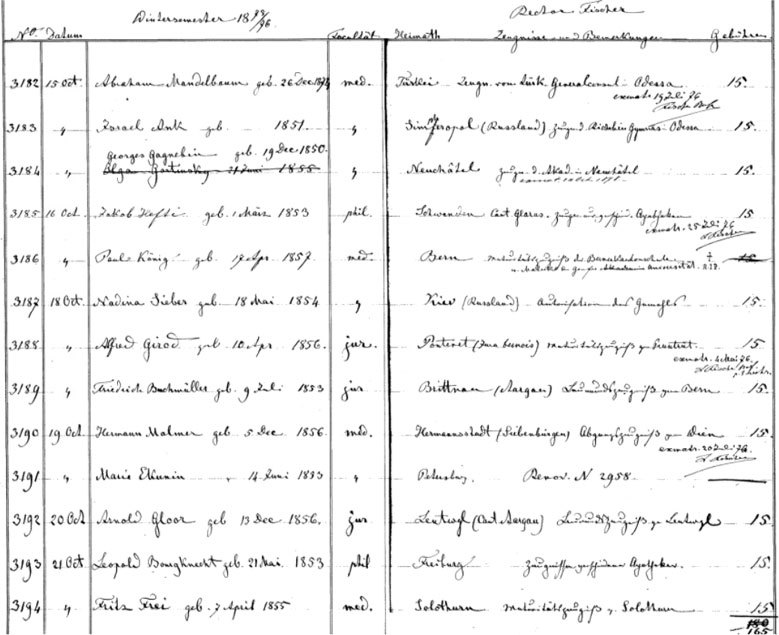 Wintersemester 1875/76 Rector Fischer
No. Datum Facultät Heimath Zeugnisse und Bemerkungen Gebühren
3182 15 Oct Abraham Mandelbaum geb. 26 Dec 1874 med. Türkei Zeugn. vom türk. Generalconsul Odessa 15.
exmatr. 19 Juli 76
3183 " Israel Ank geb. 1851. " Simferopol (Russland) Zeugn. d. Gymnas. Odessa 15.
Georges Gagnebin geb. 19 Dec 1850.
3184 " Olga 21 Juni 1855 " Neuchâtel Zeugn. d. Akad. Neuchâtel 15.
3185 16 Oct. Jakob Hefti geb. 1 März 1853 phil. Schwanden Cant Glarus. Apotheker 15
exmatr. 25 Juli 76
3186 " Paul König geb. 17 Apr. 1857. med. Bern Maturitätszeugniß der 15
3187 18 Oct. Nadina Sieber geb. 18 Mai 1854 " Kiev (Russland) Autorisation des Gemahls 15.
3188 " Alfred Girod geb. 10 Apr 1856. jur. Pontenet (Jura bernois) Maturitätszeugniß Pruntrut 15
exmatr. 4 Mai 76.
3189 " Friedrich Buchmüller geb. 9 Juli 1853 jur Brittnau (Aargau) Leumundszeugniß von Bern 15.
3190 19 Oct. Hermann Malmer geb 5 Dec 1856. med. Hermannstadt (Siebenbürgen) Abgangszeugniß von Wien 15.
exmatr. 20 Juli 76.
3191 " Maria Ekunin " 14 Juni 1853 " Petersburg Renov. N 2958.
3192 20 Oct Arnold Gloor geb 13 Dec 1856. jur Leutwyl (Cant Aargau) Leumundszeugniß v. Leutwyl 15.
3193 21 Oct Leopold Bongknecht geb. 21 Mai 1853 phil Freiburg Apotheker. 15.
3194 " Fritz Frei geb. 7 April 1855 med. Solothurn Maturitätszeugniß v. Solothurn 15
180
165